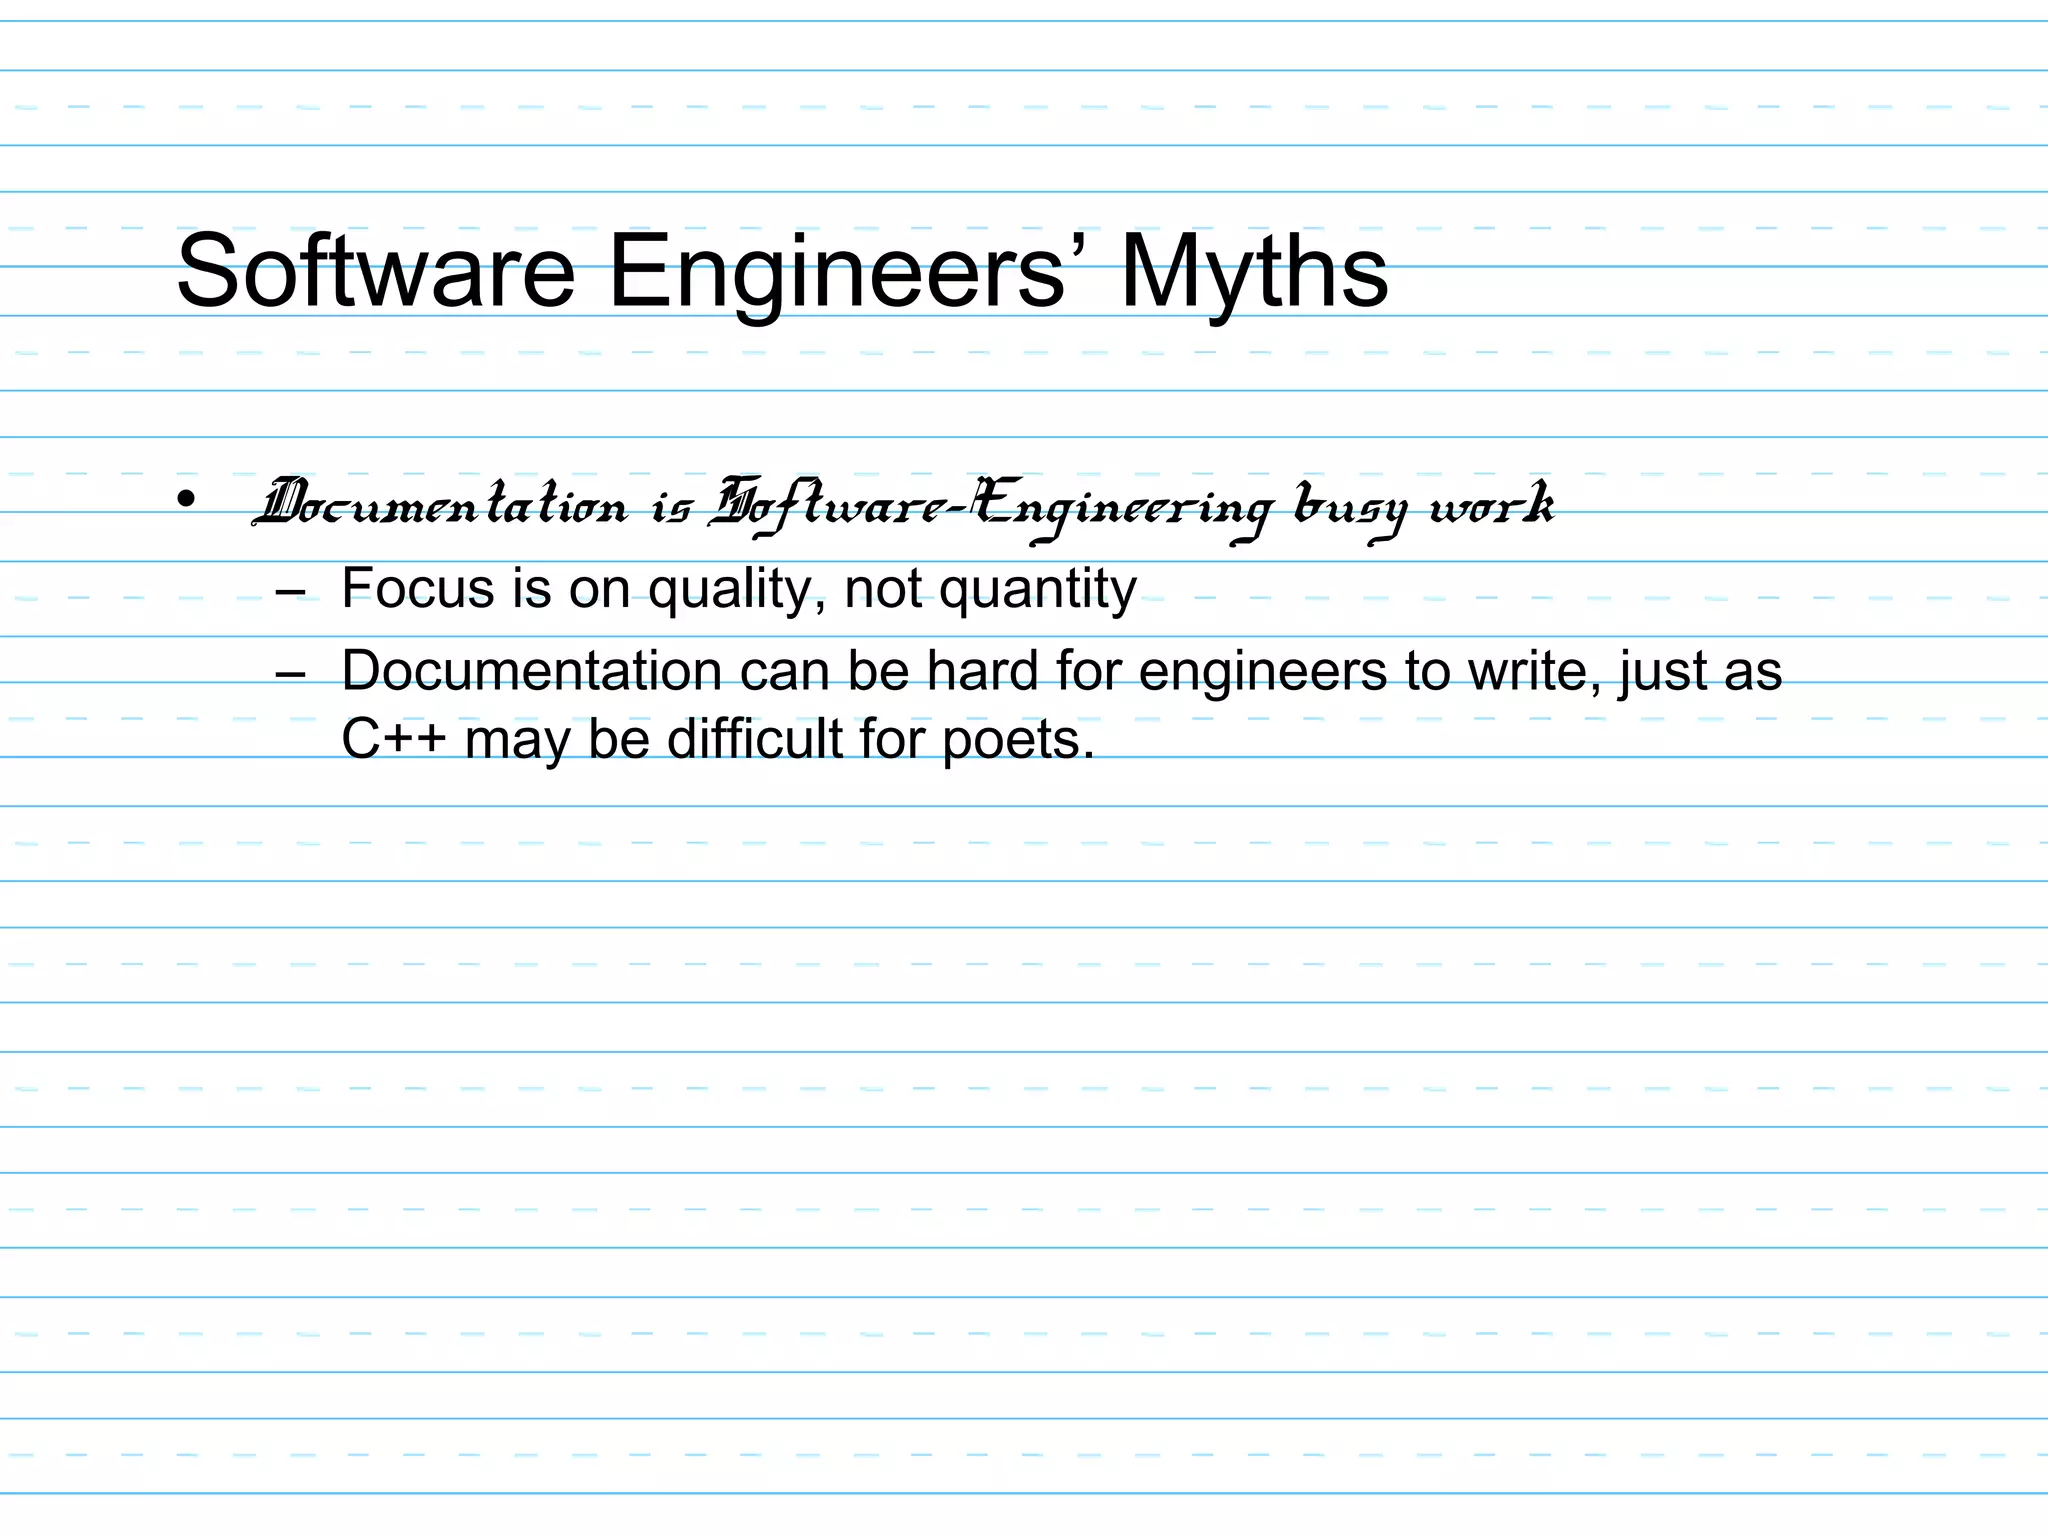 Software Engineers’ Myths
• Documentation is Software-Engineering busy work
– Focus is on quality, not quantity
– Documentation can be hard for engineers to write, just as
C++ may be difficult for poets.